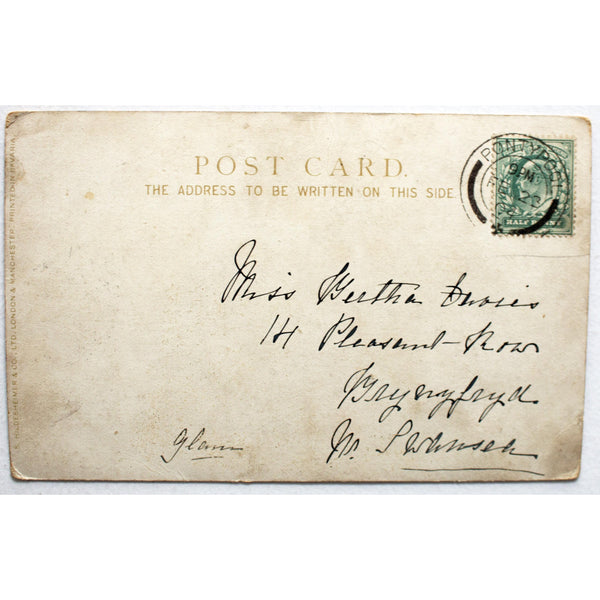 POST CARD.
THE ADDRESS TO BE WRITTEN ON THIS SIDE
PONTYPOOL
9 PM
23
HALF PENNY
Miss Bertha Davies
14 Pleasant Row
Brynyfryd
Nr. Swansea
Glam
& CO. LTD. LONDON & MANCHESTER. PRINTED IN BAVARIA.